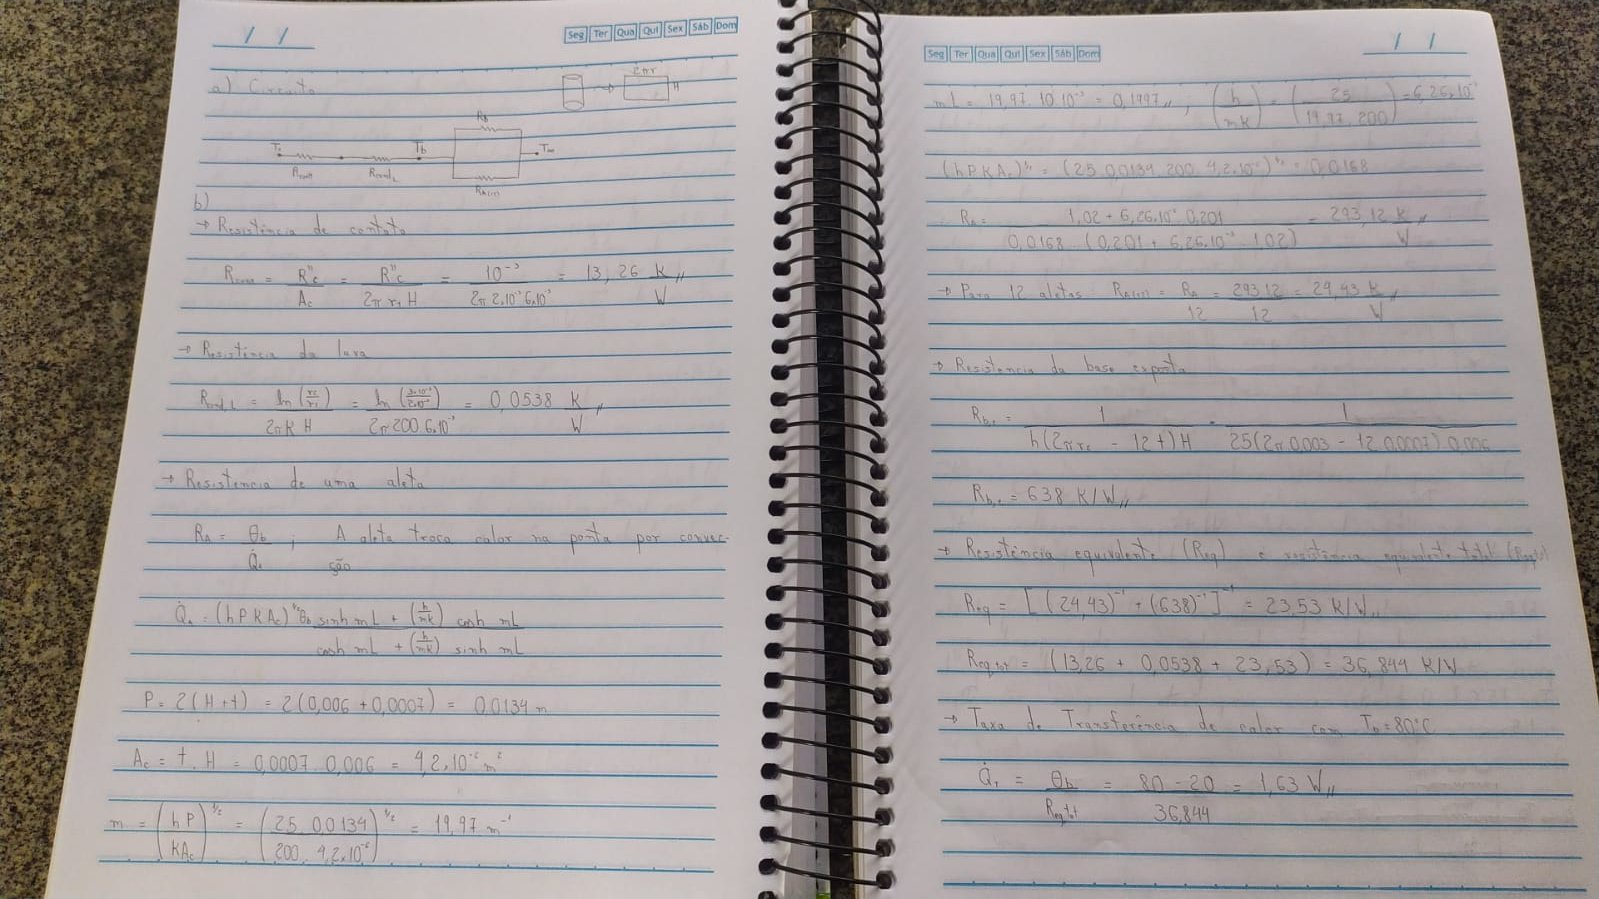 / /
Seg Ter Qua Qui Sex Sáb Dom
a) Circuito
2πr
H
Rb
T∞
Tb
Rcond,L
b)
→ Resistência de contato
= R"c = R"c = 10⁻³ = 13,26 K //
Ac 2π r1 H 2π 2.10⁻³ 6.10⁻³ W
→ Resistência da luva
Rcond,L = ln (r2/r1) = ln (3.10⁻³/2.10⁻³) = 0,0538 K //
2π K H 2π 200 6.10⁻³ W
→ Resistencia de uma aleta
RA = θb ; A aleta troca calor na ponta por convec-
Q̇a ção
Q̇a = (h P K Ac)^½ θb sinh mL + (h/mk) cosh mL
cosh mL + (h/mk) sinh mL
P = 2(H+t) = 2(0,006 + 0,0007) = 0,0134 m
Ac = t . H = 0,0007 . 0,006 = 4,2.10⁻⁶ m²
m = (hP/KAc)^½ = (25 . 0,0134/200 . 4,2.10⁻⁶)^½ = 19,97 m⁻¹
/ /
Seg Ter Qua Qui Sex Sáb Dom
mL = 19,97 . 10.10⁻³ = 0,1997 // ; (h/mk) = (25/19,97 . 200) = 6,26.10⁻³
(h P K Ac)^½ = (25 . 0,0134 . 200 . 4,2.10⁻⁶)^½ = 0,0168
RA = 1,02 + 6,26.10⁻³ . 0,201 = 293,12 K //
0,0168 . (0,201 + 6,26.10⁻³ . 1,02) W
→ Para 12 aletas RA(12) = RA = 293,12 = 24,43 K //
12 12 W
→ Resistencia da base exposta
Rb,e = 1 = 1
h(2π r2 - 12 t) H 25(2π 0,003 - 12 . 0,0007) 0,006
Rb,e = 638 K/W //
→ Resistência equivalente (Req) e resistência equivalente total
Req = [(24,43)⁻¹ + (638)⁻¹]⁻¹ = 23,53 K/W //
Req,tot = (13,26 + 0,0538 + 23,53) = 36,844 K/W
→ Taxa de Transferência de calor com Tb = 80°C
Q̇T = θb = 80 - 20 = 1,63 W //
Req,tot 36,844